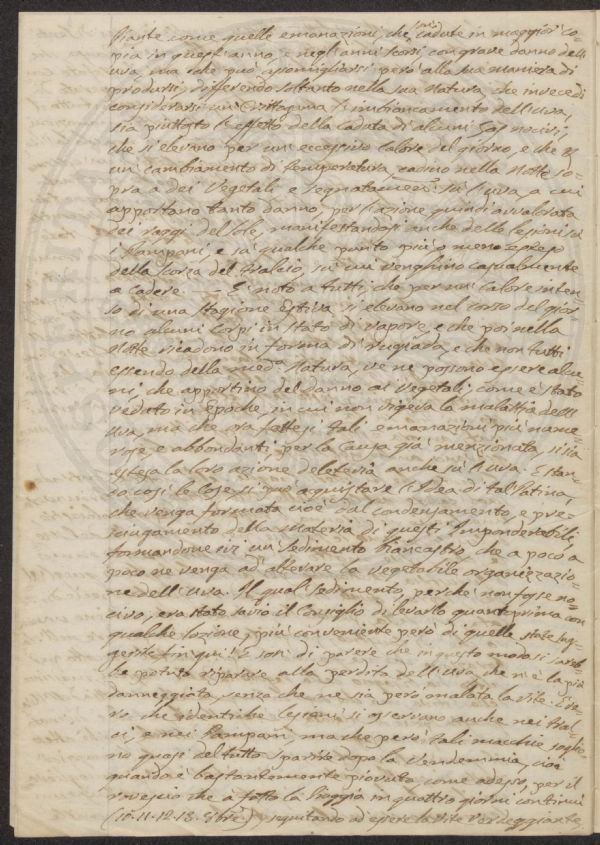 Piante come quelle emanazioni, che son cadute in maggior co-
pia in quest'anno, e negli anni scorsi con grave danno dell'
uva, ma che può assomigliarsi però alla sua maniera di
prodursi, differendo soltanto nella sua natura, che invece di
considerarsi un Crittogama l'imbiancamento dell'uva,
sia piuttosto l'effetto della caduta di alcuni Gas nocivi,
che si elevano per un eccessivo calore del giorno, e che p
un cambiamento di temperatura cadino nella notte so-
pra a dei vegetali e segnatamen su l'uva, a cui
apportano tanto danno, per l'azione quindi avvalorata
dei raggi del Sole, manifestandosi anche delle lesioni su
i Pampani, e su qualche punto più o meno esteso
della scorza del Tralcio, su cui venghino casualmente
a cadere. — È noto a tutti che per un calore inten-
so di una Stagione Estiva si elevano nel corso del gior-
no alcuni Corpi in stato di vapore, e che poi nella
notte ricadono in forma di rugiada, e che non tutti
essendo della meda natura, ve ne possono essere alcu-
ni, che apportino del danno ai vegetali come è stato
veduto in Epoche, in cui non vigeva la malattia dell'
uva, ma che ora fattesi tali emanazioni più nume-
rose, e abbondanti per la Causa già menzionata, si sia
estesa la loro azione deleteria anche su l'uva. Stan-
do così le Cose, si può acquistare l'Idea di tal Patina,
che venga formata cioè dal condensamento, e pro-
sciugamento della materia di questi Imponderabili,
formandone ivi un sedimento biancastro, che a poco a
poco ne venga ad alterare la vegetabile organizzazio-
ne dell'uva. Il qual sedimento, perché non fosse no-
civo, era stato savio il Consiglio di levarlo quanto prima con
qualche lozione, più conveniente però di quelle state sug-
gerite fin qui. E son di parere che in questo modo si sareb-
be potuto riparare alla perdita dell'uva, che n'è la più
danneggiata, senza che ne sia però malata la vite. È ve-
ro che identiche lesioni si osservano anche nei Tral-
ci, e nei Pampani, ma che però tali macchie soglio-
no quasi del tutto sparire dopo la Vendemmia, cioè
quando è bastantemente piovuto come adesso, per il
rovescio che à fatto la Pioggia in quattro giorni continui
(10-11-12-13. 8bre), seguitando ad essere la vite verdeggiante,